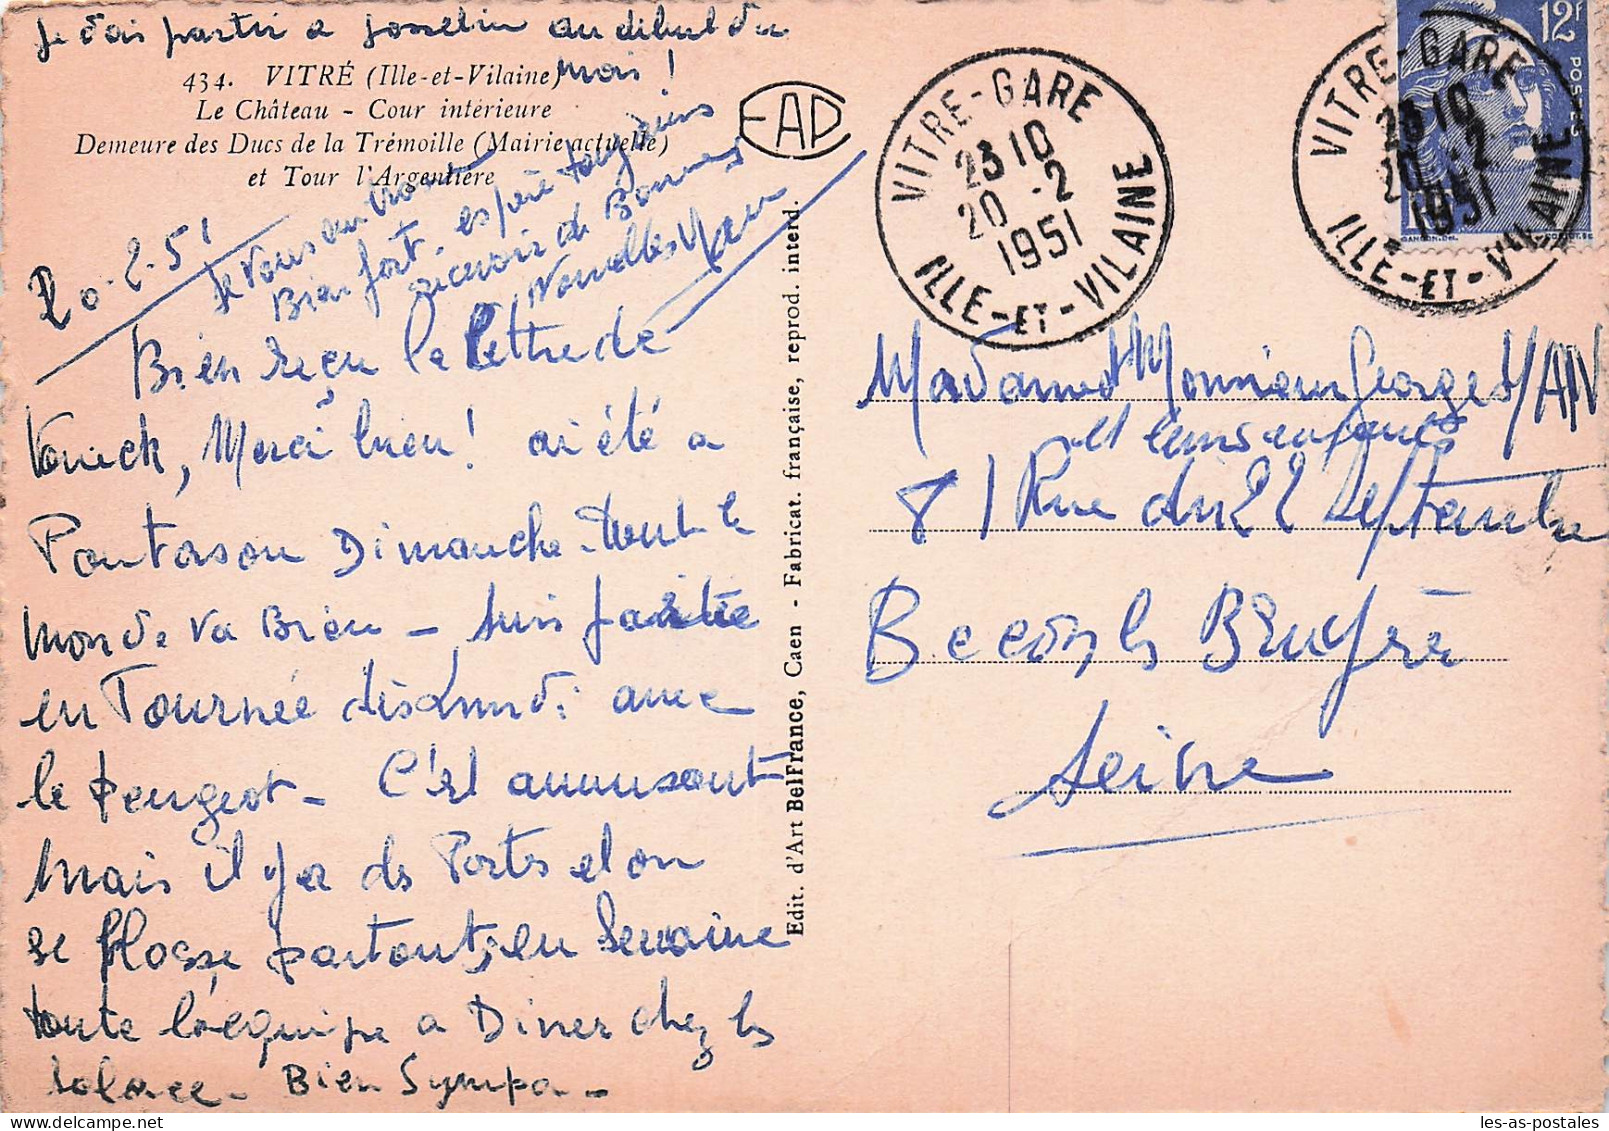 Je dois partir a Josselin au début du
mois !
434. VITRÉ (Ille-et-Vilaine)
Le Château - Cour intérieure
Demeure des Ducs de la Trémoille (Mairie actuelle)
et Tour l'Argentière
EAP
20-2-51
Bien reçu la lettre de
Merci bien ! ai été a
Pontorson Dimanche - tout le
monde va Bien - suis partie
en Tournée dis Lundi avec
le Peugeot - C'est amusant
Mais il y a des Ports et on
se partout, en Semaine
toute l'équipe a Diner chez les
Solace - Bien Sympa -
Je vous
Bien fort - espère toujours
recevoir de Bonnes
Nouvelles Yan
Edit. d'Art BelFrance, Caen - Fabricat. française, reprod. interd.
VITRE-GARE
23 10
20 -2
1951
ILLE-ET-VILAINE
12F
POSTES
VITRE-GARE
23 10
20 -2
1951
ILLE-ET-VILAINE
Madame et Monsieur Georges YAN
et leurs enfants
81 Rue du 22 Septembre
Becon les Bruyère
Seine
les-as-postales